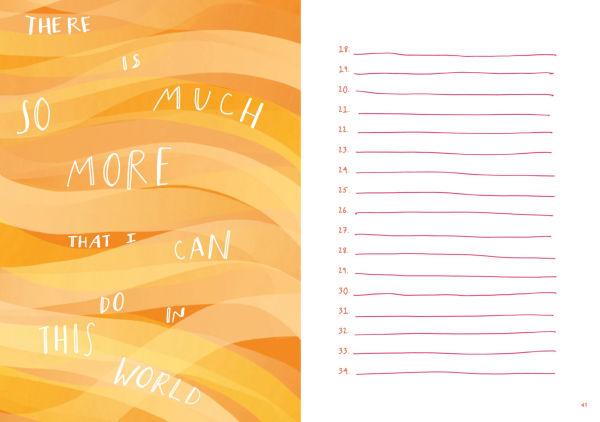 THERE
IS
SO MUCH
MORE
THAT I CAN
DO IN
THIS
WORLD
18.
19.
20.
21.
22.
23.
24.
25.
26.
27.
28.
29.
30.
31.
32.
33.
34.
41